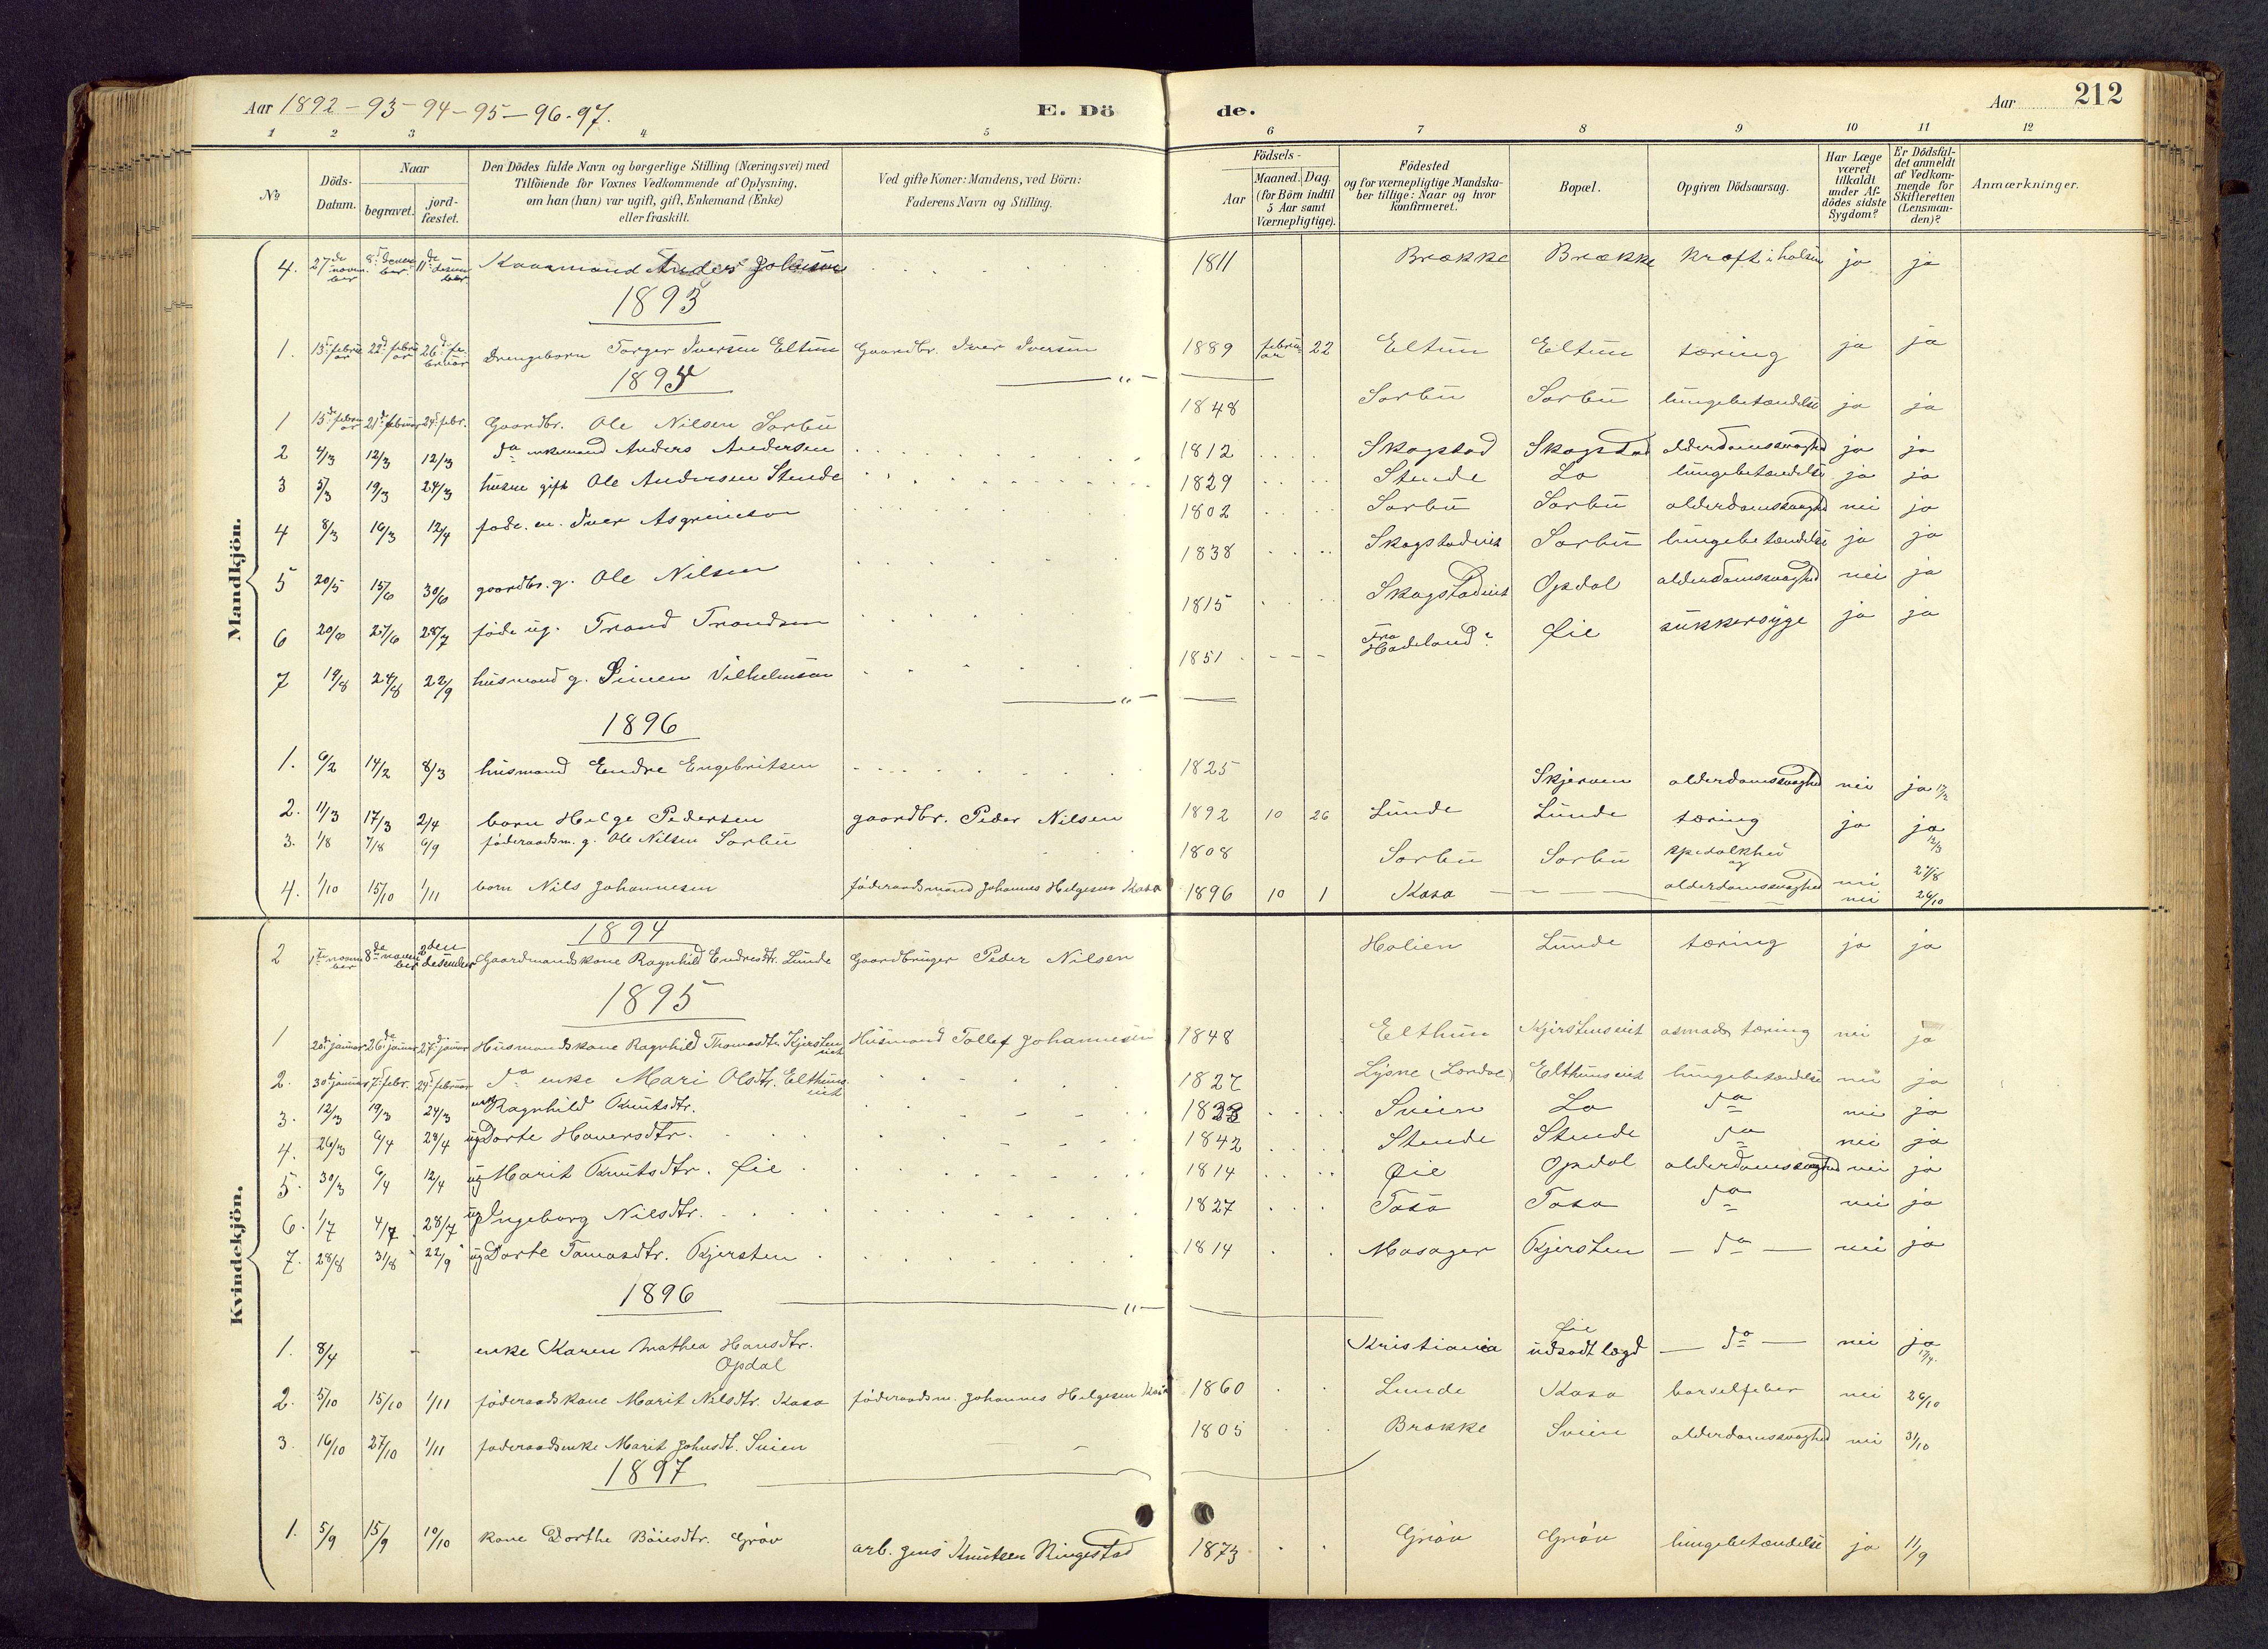 Aar 1892-93-94-95-96-97. E. Dö de. Aar 212
1 2 3 4 5 6 7 8 9 10 11 12
No
Döds-Datum.
Naar
begravet.
jord-fæstet.
Den Dödes fulde Navn og borgerlige Stilling (Næringsvei) med
Tilföiende for Voxnes Vedkommende af Oplysning,
om han (hun) var ugift, gift, Enkemand (Enke)
eller fraskilt.
Ved gifte Koner: Mandens, ved Börn:
Faderens Navn og Stilling.
Födsels-
Aar
Maaned. Dag.
(for Börn indtil
5 Aar samt
Værnepligtige).
Födested
og for værnepligtige Mandska-
ber tillige: Naar og hvor
konfirmeret.
Bopæl.
Opgiven Dödsaarsag.
Har Læge
været
tilkaldt
under Af-
dödes sidste
Sygdom?
Er Dödsfal-
det anmeldt
af Vedkom-
mende for
Skifteretten
(Lensman-
den)?
Anmærkninger.
Mandkjön.
4. 27de november 8de desember 11de desember Anders 1811 Brække Brække kræft i halsen ja ja
1893
1. 15 februar 22d februar 26d februar Drengebarn Torger Iversen Eltun Gaardbr. Iver Iversen 1889 februar 22 Eltun Eltun tæring ja ja
1895
1 15de februar 21de februar 24d febr. Gaardbr. Ole Nilsen Sorbu 1848 Sorbu Sorbu lungebetændelse ja ja
2 4/3 12/3 12/3 do enkemand Anders Andersen 1812 Skogstad Skogstad alderdomssvaghed ja ja
3 5/3 19/3 24/3 husm gift Ole Andersen Stende 1829 Stende Lo lungebetændelse ja ja
4 8/3 16/3 12/4 føde. en. Iver Asgrimson 1802 Sorbu Sorbu alderdomssvaghed nei ja
5 20/5 15/6 30/6 gaardbr. g. Ole Nilsen 1838 Skogstadeiet Sorbu lungebetændelse ja ja
6 20/6 27/6 28/7 føde ug. Trond Trondsen 1815 Skogstadeiet Opdal alderdomssvaghed nei ja
7 19/8 24/8 22/9 husmand g. Simen Vilhelmsen 1851 Fra Hadeland? Øie sukkersyge ja ja
1896
1. 6/2 14/2 8/3 husmand Endre Engebritsen 1825 Skjerven alderdomssvaghed nei ja 17/2
2. 11/3 17/3 2/4 barn Helge Pedersen gaardbr. Peder Nilsen 1892 10 26 Lunde Lunde tæring ja ja 12/3
3. 1/8 7/8 6/9 föderaadsm. g. Ole Nilsen Sorbu 1808 Sorbu Sorbu spedalkhed og alderdomssvaghed nei 27/8
4. 1/10 15/10 1/11 barn Nils Johannesen föderaadsmand Johannes Helgesen Kasa 1896 10 1 Kasa nei 26/10
Kvindekjön.
1894
2 1te november 8de november 2den desember Gaardmandskone Ragnhild Endresdtr. Lunde Gaardbruger Peder Nilsen Holien Lunde tæring ja ja
1895
1 20de januar 26de januar 27de januar Husmandskone Ragnhild Thomasdtr. Kjersteneiet Husmand Tollef Johannesen 1848 Elthun Kjersteneiet tæring nei ja
2. 30te januar 7de febr. 24de februar do enke Mari Olsdtr. Elthunseiet 1827 Lysne (Lærdal) Elthunseiet lungebetændelse nei ja
3. 12/3 19/3 24/3 Ragnhild Knutsdtr. Svien Lo do nei ja
4. 26/3 6/4 28/4 ug Dorte Haversdtr. 1842 Stende Stende do nei ja
5. 30/3 6/4 12/4 ug Marit Knutsdtr. Øie 1814 Øie Opdal alderdomssvaghed nei ja
6. 1/7 4/7 28/7 ug Ingeborg Nilsdtr. 1827 Tasa Tasa do nei ja
7. 28/8 31/8 22/9 ug Dorte Tomasdtr. Kjersten 1814 Mosager Kjersten - do - nei ja
1896
1. 8/4 - enke Karen Mathea Hansdtr. Opdal Kristiania Øie udsadt lægd - do - nei ja 17/4.
2. 5/10 15/10 1/11 föderaadskone Marit Nilsdtr. Kasa föderaadsm. Johannes Helgesen Kasa 1860 Lunde Kasa barselfeber nei 26/10
3. 16/10 27/10 1/11 föderaadsenke Marit Johnsdt. Svien 1805 Brække Svien alderdomssvaghed nei 31/10
1897
1. 5/9 15/9 10/10 kone Dorthe Böiesdtr. Gröv arb. Jens Knutsen Ringestad 1873 Gröv Gröv lungebetændelse ja 11/9